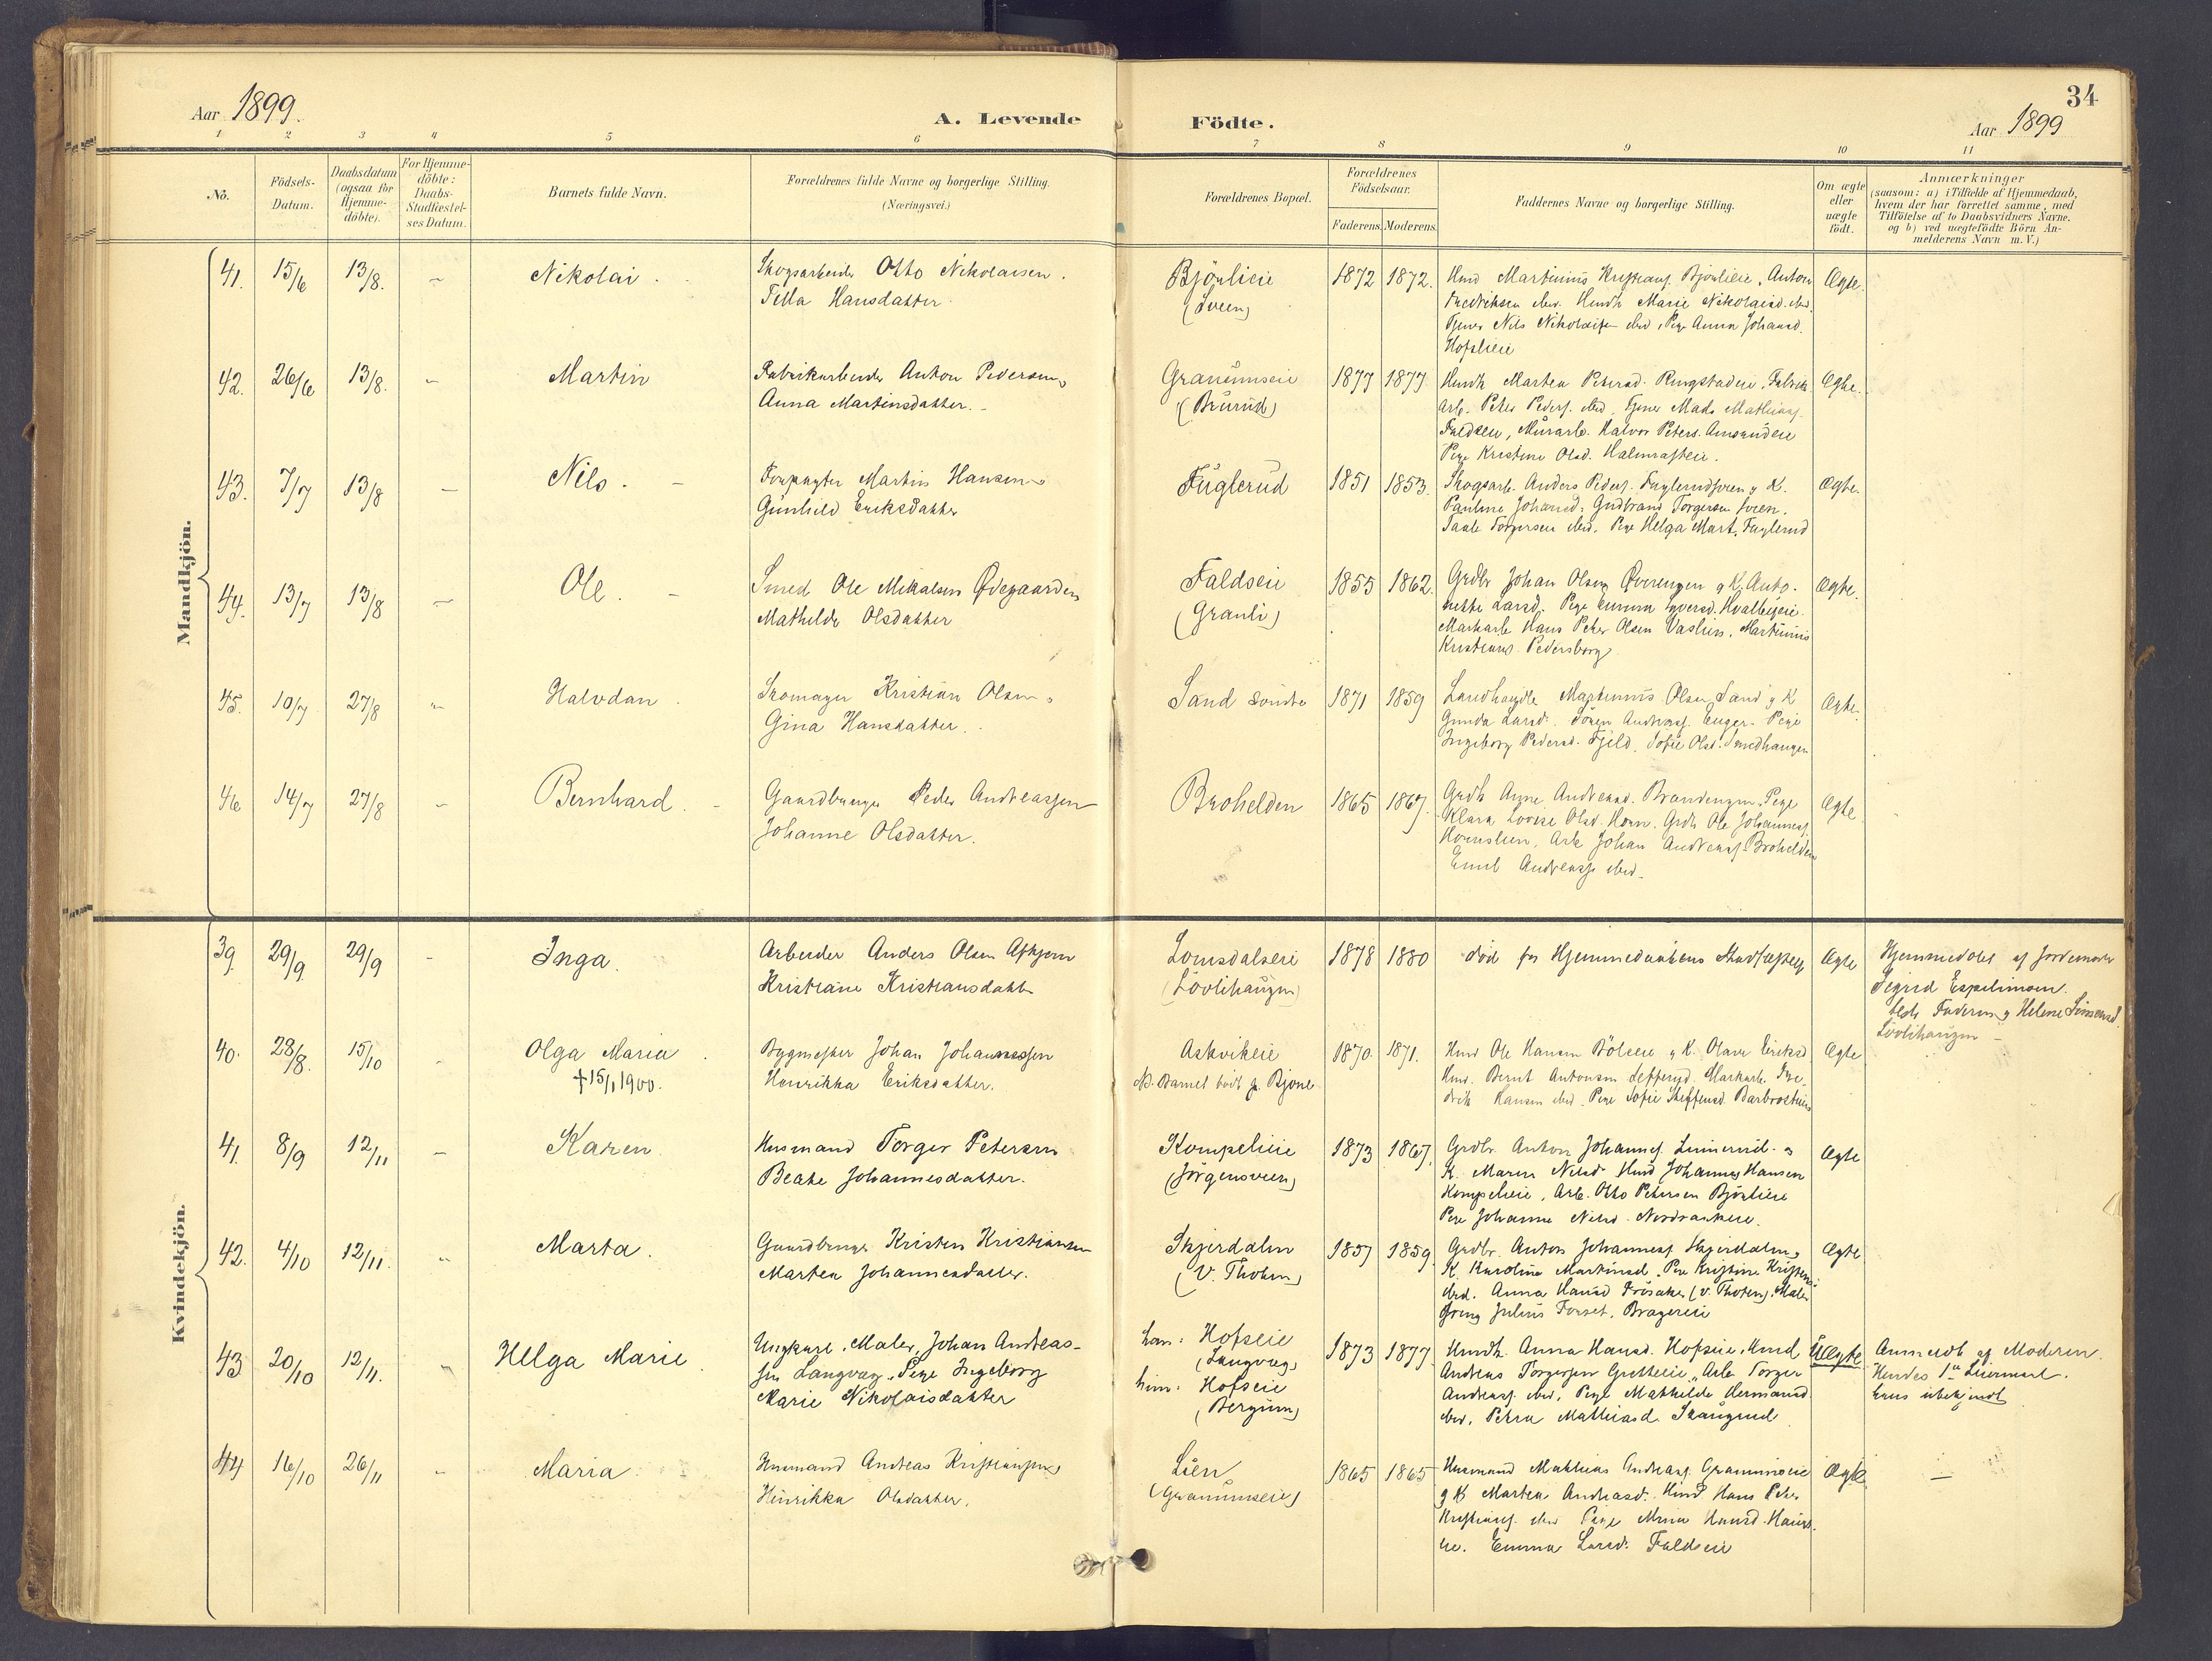 Aar 1899.
A. Levende Födte.
34
Aar 1899
1 2 3 4 5 6 7 8 9 10 11
No.
Födsels-
Datum.
Daabsdatum
(ogsaa for
Hjemme-
döbte).
For Hjemme-
döbte:
Daabs-
Stadfæstel-
ses Datum.
Barnets fulde Navn.
Forældrenes fulde Navne og borgerlige Stilling.
(Næringsvei.)
Forældrenes Bopæl.
Forældrenes
Födselsaar.
Faderens. Moderens.
Faddernes Navne og borgerlige Stilling.
Om ægte
eller
uægte
födt.
Anmærkninger
(saasom: a) i Tilfælde af Hjemmedaab,
hvem der har forrettet samme, med
Tilföielse af to Daabsvidners Navne,
og b) ved uægtefödte Börn An-
melderens Navn m. V.)
Mandkjön.
41. 15/6 13/8. Nikolai
Skogsarbeider Otto Nikolaisen.
Hansdatter
Bjönlieie
(Sveen)
1872 1872.
Hmd Martinius Kristians. Bjönlieie, Anton
Fredriksen ibd. Hmdk Marie Nikolaisd. ibd.
Tjener Nils Nikolaisen ibd, Pige Anna Johansd.
Hofslieie
Ægte.
42. 26/6 13/8. Martin
Fabrikarbeider Anton Pedersen,
Anna Martinsdatter.
Granumseie
(Brurud)
1877 1877.
Hmdk Martea Petersd. Ringstadeie, Fabrik
arb. Peter Peders. ibd, Tjener Mads Mathias.
Faldseie, Murarb. Halvor Peters. Amundeie
Pige Kristine Olsd.
Ægte.
43. 7/7 13/8 Nils.
Forpagter Martin Hansen
Gunhild Eriksdatter
Fuglerud
1851 1853.
Skogsarb. Anders Peders. Fuglerudsveen, K.
Pauline Johansd. Gudbrand Torgersen Sveen.
Torgersen ibd. Pige Helga Mart. Fuglerud
Ægte.
44. 13/7 13/8 Ole.
Smed Ole Mikalsen Ødegaarden
Mathilde Olsdatter
Faldseie
(Granli)
1855 1862.
Grdbr Johan Olsen Øverengen & K. Anto-
nette Larsd. Pige Emma Iversd. Hvalbyeie.
Markarb Hans Peter Olsen Vaslien, Martinius
Kristians. Pedersborg
Ægte.
45. 10/7 27/8 Halvdan
Skomager Kristian Olsen,
Gina Hansdatter.
Sand söndre
1871 1859
Landhandler Martinius Olsen Sand & K
Gunda Larsd. Sören Andreas. Enger. Pige
Ingeborg Pedersd. Fjeld, Sofie Olsd. Smedhaugen
Ægte.
46 14/7 27/8 Bernhard.
Gaardbruger Peder Andreassen
Johanne Olsdatter.
Brohelden
1865 1867.
Grdk Anne Andreasd. Brandengen, Pige
Klara Lovise Olsd. Horn. Grdb Ole Johannes.
Hornslien, Arb Johan Andreas. Brohelden
Emil Andreass. ibd.
Ægte
Kvindekjön.
39. 29/9 29/9 Inga.
Arbeider Anders Olsen
Kristiane Kristiansdatter
Lomsdalseie
(Lövlihaugen)
1878 1880
död før Hjemmedaabens Stadfæstelse
Ægte
Hjemmedöbt af Jordemoder
Sigrid Espelinsen.
Tilst. Faderen & Helene Simensd.
Lövlihaugen
40. 28/8. 15/10 Olga Maria
†15/1 1900.
Bygmester Johan Johannessen
Henrikka Eriksdatter.
Askvikeie
NB. Barnet födt p. Bjone
1870 1871.
Hmd Ole Hansen Bölseie & K. Olave Eriksd
Hmd. Bernt Antonsen Lefferud. Markarb. Fre-
drik Hansen ibd. Pige Sofie Steffensd.
Ægte
41. 8/9 12/11 Karen.
Husmand Torger Petersen
Beate Johannesdatter.
Kompelieie
(Jörgensveen)
1873 1867.
Grdbr. Anton Johannes. Linnerud &
K. Maren Nilsd. Hmd Johannes Hansen
Kompelieie, Arb. Otto Petersen Bjönlieie
Pige Johanne Nilsd.
Ægte
42. 4/10 12/11. Marta.
Gaardbruger Kristen Kristiansen
Martea Johannesdatter.
Skjerdalen
(V. Thoten)
1857 1859.
Grdbr. Anton Johannes. Skjerdalen,
K. Karoline Martinsd. Pige Kristine Kristens.
ibd. Anna Hansd Frösaker (V. Thoten). Maler
Julius Forset, Bragereie
Ægte
43. 20/10 12/11. Helga Marie
Ungkarl, Maler, Johan Andreas-
sen Langvag, Pige Ingeborg
Marie Nikolaisdatter
han: Hofseie
(Langvag)
hun: Hofseie
(Bergum)
1873 1877.
Hmdk. Anna Hansd. Hofseie, Hmd
Andreas Torgersen Gretteeie, Arb. Torger
Andreas. ibd, Pige Mathilde Hermansd
ibd, Petra Mathiasd. Skaugerud
Uægte
Anmeldt af Moderen.
Hendes 1ste Leiermaal.
hans ubekjendt
44 16/10 26/11 Maria.
Husmand Andreas Kristiansen,
Henrikka Olsdatter.
Lien
(Granumseie)
1865 1865
Husmand Mathias Andreas. Granumseie
& K Martea Andreasd. Hmd Hans Peter
Kristians. ibd Pige Hansd. Haugs-
eie. Emma Larsd. Faldseie
Ægte